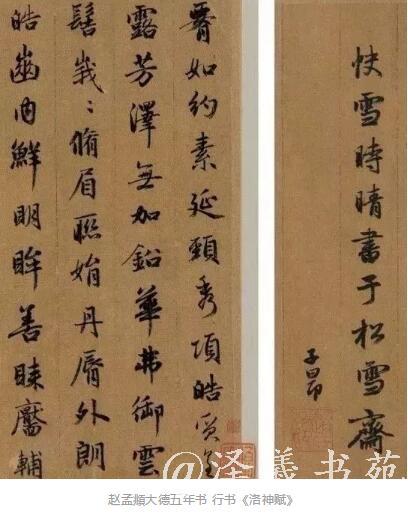 腰如約素延頸秀項皓質呈
露芳澤無加鉛華弗御雲
髻峩〻脩眉聯娟丹脣外朗
皓齒内鮮明眸善睞靨輔
快雪時晴書于松雪齋
子昂
@泽羲书苑
赵孟頫大德五年书 行书《洛神赋》